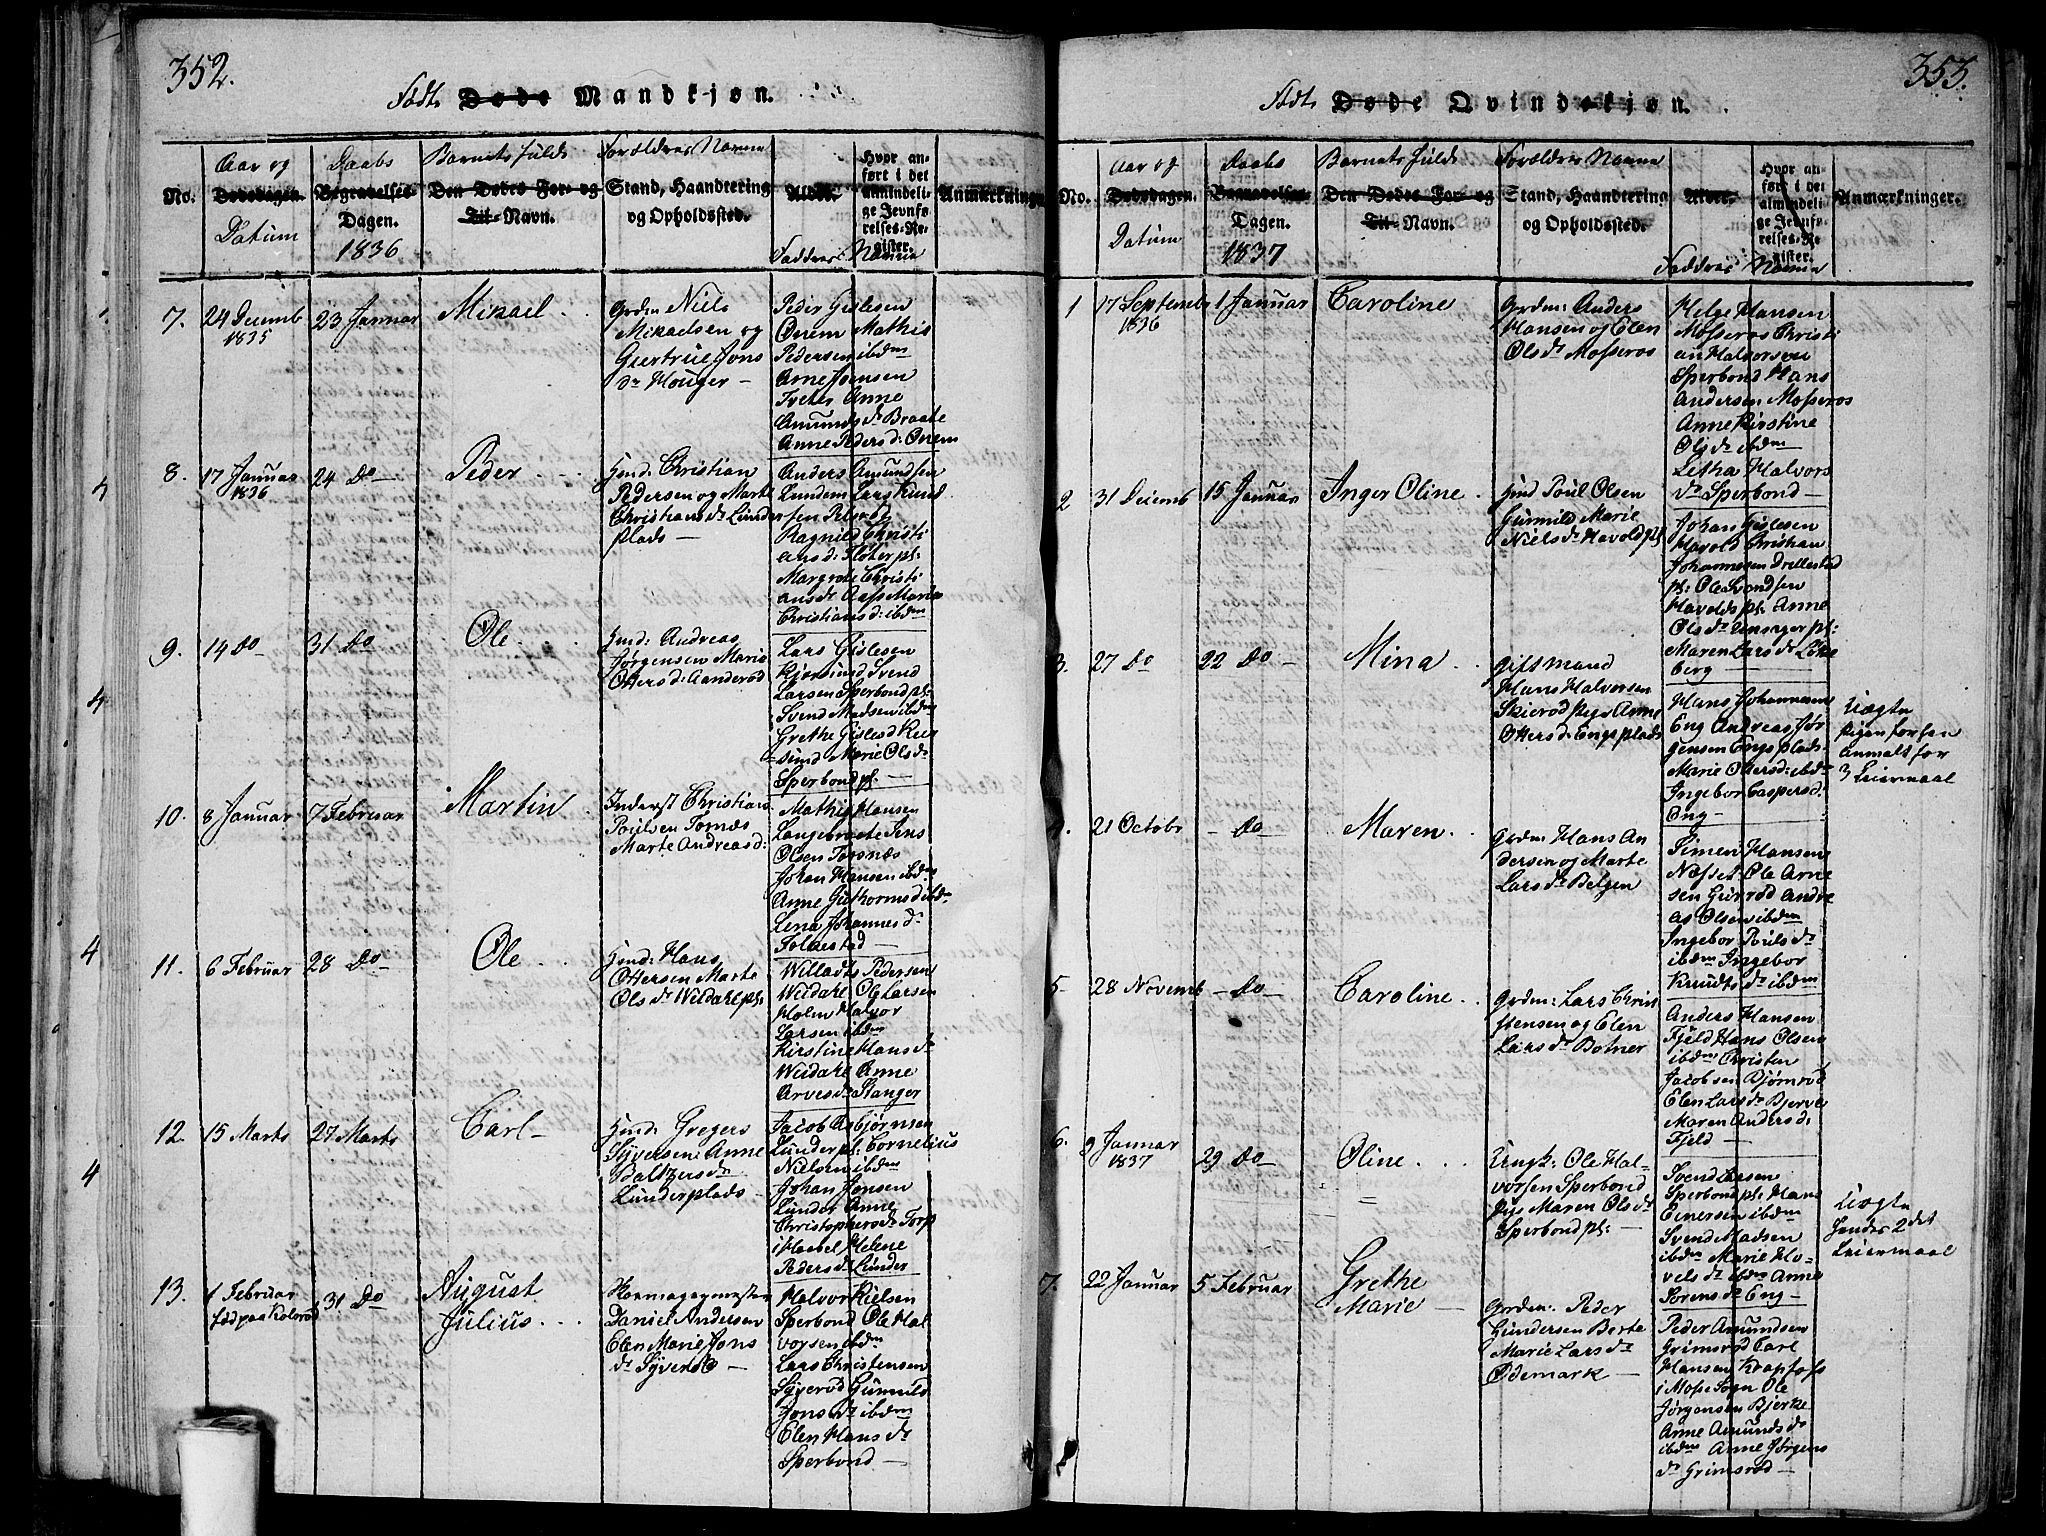 352.
Født Døde Mandkjøn.
No.
Aar og
Dødsdagen.
Datum
Daabs
Begravelses-
Dagen.
1836
Barnets fulde
Den Dødes For- og
Til-Navn.
Forældres Navne
Stand, Haandtering
og Opholdssted.
Alder.
Hvor an-
ført i det
almindeli-
ge Jevnfø-
relses-Re-
gister.
Faddres Navne
Anmærkninger
7.
24 Decemb
1835
23 Januar
Mikael
Grdm Niels
Mikaelsen og
Giertrue Jons
dr Houger -
Peder Gislesen
Onem Mathis
Pedersen ibdm
Arne Jensen
Tveter Anne
Amunds dr Braate
Anne Peders d: Onem
8.
17 Januar
1836
24 Do
Peder
Hmd: Christian
Pedersen og Marte
Christians dr Lunder
plads -
Anders Amundsen
Lundem Lars Knud
sen
Ragnild Christi
ans d: Floterpl:
Margrete Christi
ans dr Aass Marie
Christians d: ibdm
9.
14 Do
31 Do
Ole
Hmd: Andreas
Jørgensen Marie
Otters d: Aanderød
Lars Gislesen
Kjorsund Svend
Larsen Sperbond pl:
Svend Madsen ibdm
Grethe Gisles d Kior
sund Marie Ols dr
Sperbond pl. -
10.
8 Januar
7 Februar
Martin
Inderst Christian
Poulsen Tornæs
Marte Andreas d:
Mathis Hansen
Langebraate Jens
Olsen Torsnæs
Johan Hansen ibdm
Anne Guthorms d ibdm
Lena Johannes dr
Folkestad -
11.
6 Februar
28 Do
Ole
Hmd: Hans
Ottersen Marte
Ols dr Weidahl pl:
Willadts Pedersen
Weidahl Ole Larsen
Holen Halvor
Larsen ibdm
Kirstine Hans dr
Weidahl Anne
Arves dr Stanger
12.
15 Marts
27 Marts
Carl -
Hmd: Gregers
Syversen Anne
Baltzers dr
Lunderplads -
Jacob Asbjørnsen
Lunderpl: Cornelius
Nielsen ibdm
Johan Jensen
Lunder Anne
Christophers dr Torp
i Haabel Helene
Peders dr Lunder
13.
1 Februar
fød paa Kolsrød
31 Do
August
Julius
Daniel Andersen
Elen Marie Jons
dr Syverød -
Halvor Nielsen
Sperbond Ole Hal
vorsen ibdm
Lars Christensen
Syverød Gunnild
Jons dr ibdm
Elen Hans dr
Sperbond -
4
4
4
353.
Født Døde Qvindekjøn.
No.
Aar og
Dødsdagen.
Datum
Daabs
Begravelses-
Dagen.
1837
Barnets fulde
Den Dødes For- og
Til-Navn.
Forældres Navne
Stand, Haandtering
og Opholdssted.
Alder.
Hvor an-
ført i det
almindeli-
ge Jevnfø-
relses-Re-
gister.
Faddres Navne
Anmærkninger.
1
17 Septemb
1836
1 Januar
Caroline
Grdm: Anders
Hansen og Elen
Ols dr Mosseros
Helge Hansen
Mosseros Christi
an Halvorsen
Sperbond Hans
Andersen Mosseros
Anne Kirstine
Ols dr ibdm
Letha Halvors
dr Sperbond -
2
31 Decemb
15 Januar
Inger Oline
Hmd Poul Olsen
Gunnild Marie
Niels dr Havold pl:
Johan Gislesen
Havold Christian
Johannesen Drillestad
pl: Ole Svendsen
Havolds pl: Anne
Ols dr Unsgerpl:
Maren Lars dr Løke
berg -
3.
27 Do
22 Do -
Mina
Giftmand
Hans Halvorsen
Skierød Pige Anne
Otters d: Engsplads
Hans Johannesen
Eng Andreas Jør
gensen Engsplads
Marie Otters d: ibdm
Ingebor Caspers d:
Eng -
Uægte
Pigen forsen
Anmeldt for
3 Leiermaal
4.
21 Octobr
- Do -
Maren
Grdm: Hans An
dersen og Marte
Lars dr Belgen
Simen Hansen
Næsset Ole Arne
sen Gunrød Andre
as Olsen ibdm
Ingebor Pouls dr
ibdm Ingebor
Knudts dr ibdm
5-
28 Novemb
- Do -
Caroline
Grdm: Lars Chris
stensen og Elen
Lars dr Botner
Anders Hansen
Fjeld Hans Olsen
ibdm Christen
Jacobsen Bjørnrød
Elen Lars dr Bjerve
Maren Anders d:
Fjeld -
6.
9 Januar
1837
29 Do
Oline
=
Ungk: Ole Hal-
vorsen Sperbond
Pige Maren Ols dr
Sperbond pl: -
Svend Larsen
Sperbond pl: Hans
Einersen ibdm
Svend Madsen
ibdm Marie Ho-
vels dr ibdm Anne
Sørens dr Eng -
Uægte
hendes 2det
Leiermaal
7.
22 Januar
5 Februar
Grethe
Marie -
Grdm: Peder
Gundersen Berte
Marie Lars dr
Ødemark -
Peder Amundsen
Grimsrød Carl
Hansen Krapfoss
i Moss Sogn Ole
Jørgensen Bjerke
Anne Amunds dr
ibdm Anne Jørgens
dr Grimsrød -